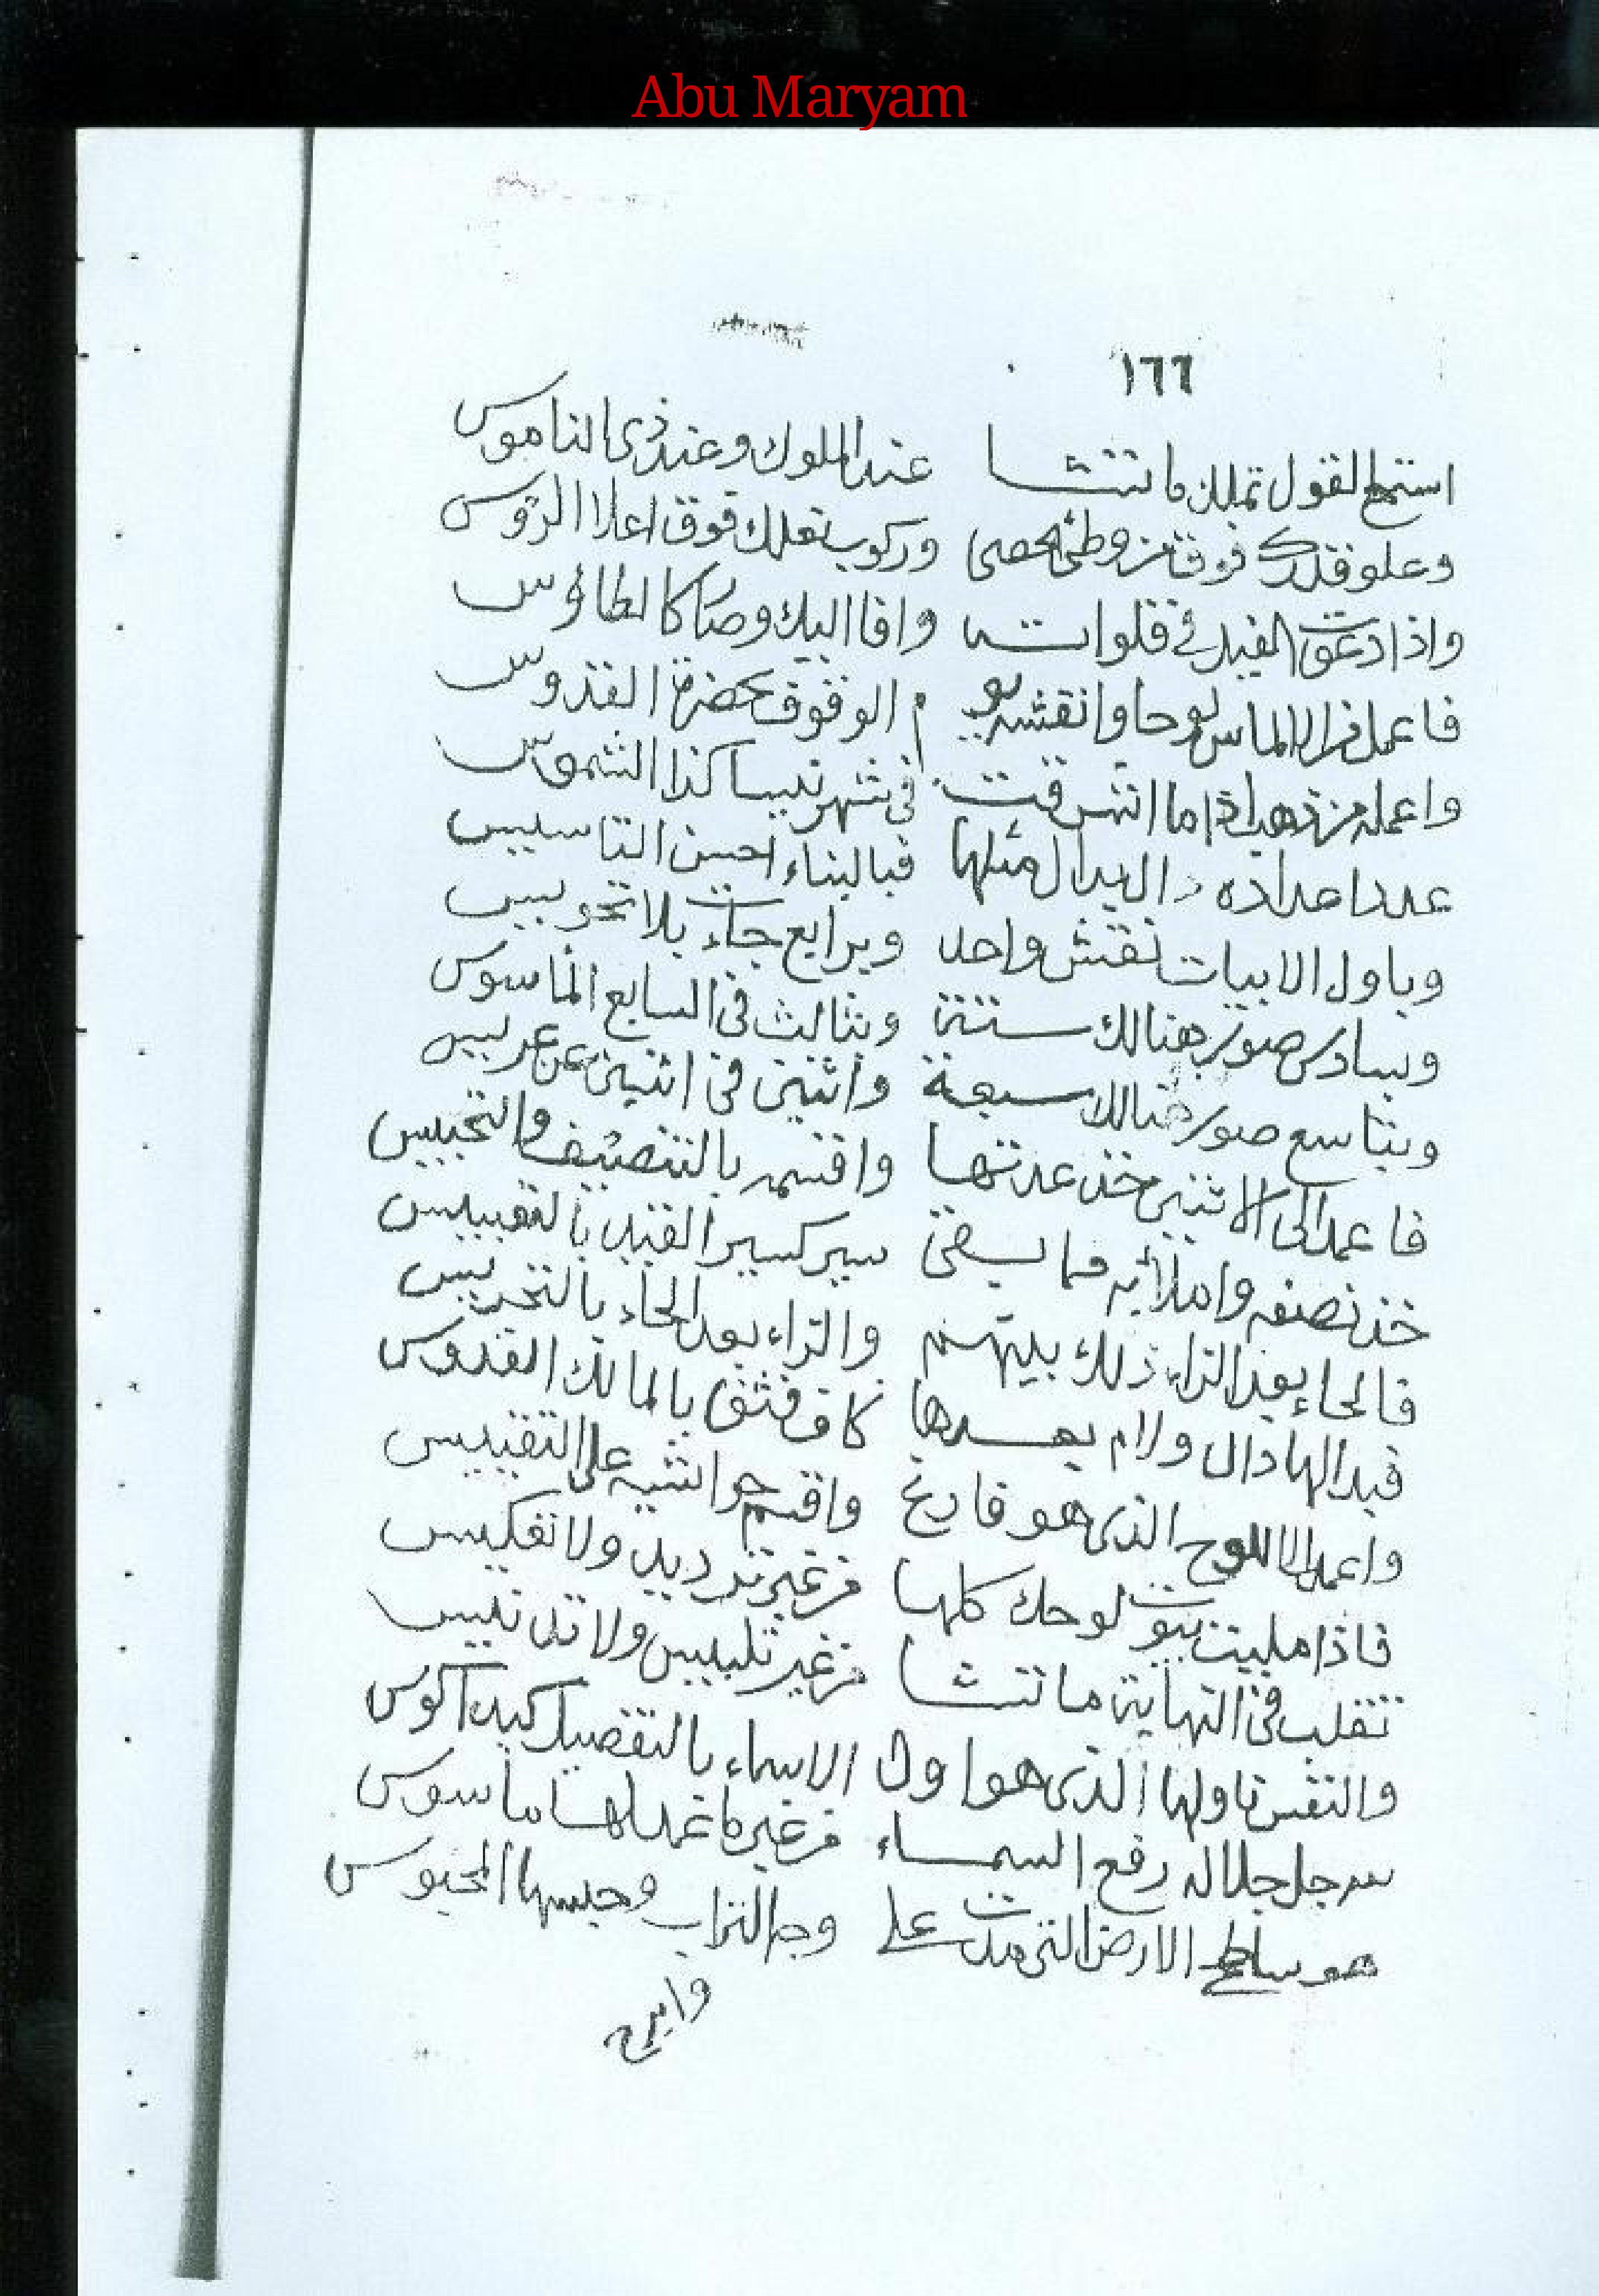 Abu Maryam
١٦٦
استمع القول تملك ما تشا عند الملوك وعند ذى الناموس
وعلو قدرك فوق من وطئ الحصى وركوب نعلك فوق اعلا الرؤس
واذا دعوت الفيل فى فلواته وافا اليك وصار كالطاؤس
فاعمل من الالماس لوحا وانقشه يو م الوقوف بحضرة القدوس
واعمله من ذهب اذا ما اشرقت فى شهر نيسا كذا الشموس
عددا اعداده الدال مثلها فبالبناء احسن التاسيس
وباول الابيات نقش واحد وبرابع جاءت بلا تحويس
وبسادس صور هنالك ستة وبثالث فى السابع المأسوس
وبتاسع صور هنالك سبعة واثنين فى اثنين عن
فاعمد الى الاثنين خذ عدتها واقسمه بالتنصيف والتخميس
خذ نصفه واملأ به فما بقى سير كسير الفيل بالتفييس
فالحاء بعد الزاء ذلك بينهم والزاء بعد الحاء بالتحريس
فبدالها دال ولام بعدها كاف فثق بالمالك القدوس
واعمد الا اللوح الذى هو فارغ واقسم حواشيه على التقييس
فاذا مليت بيوت لوحك كلها من غير ترديد ولا تفكيس
تقلب فى النهاية ما تشا من غير تلبيس ولا تدنيس
والنقس تاولها الذى هو اول الاسماء بالتفصيل
سر جل جلاله رفع السماء من غير ما عمد لها مأسوس
هو ساطح الارض التى مدت على وجه التراب وحبسها المحبوس